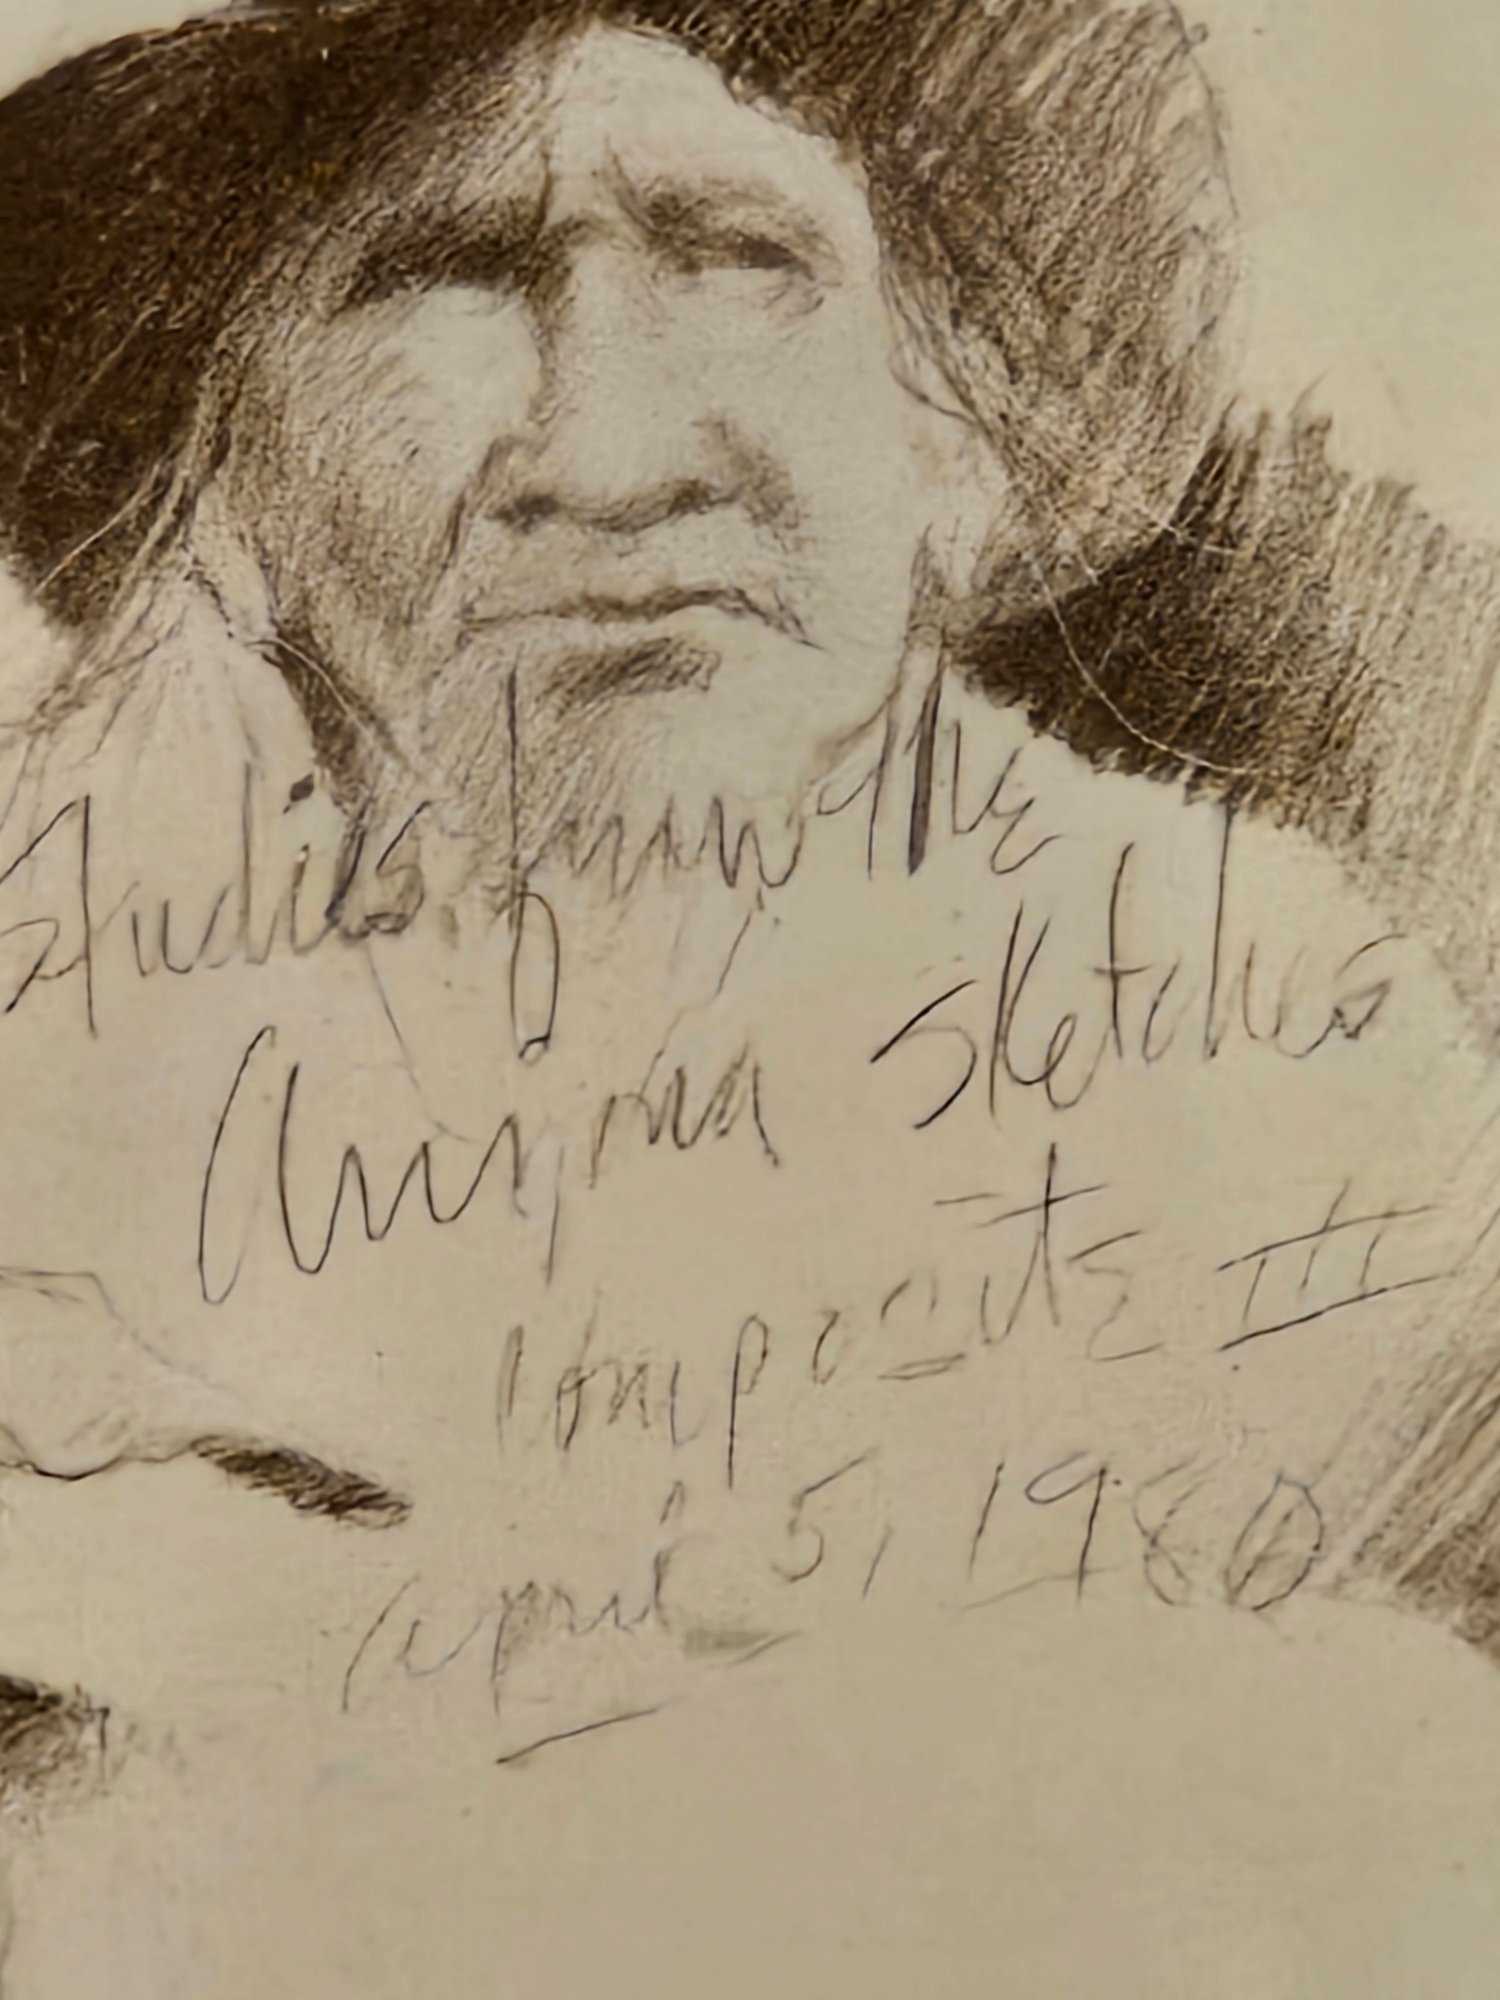 Studies from the
sketches
Composite III
April 5, 1980